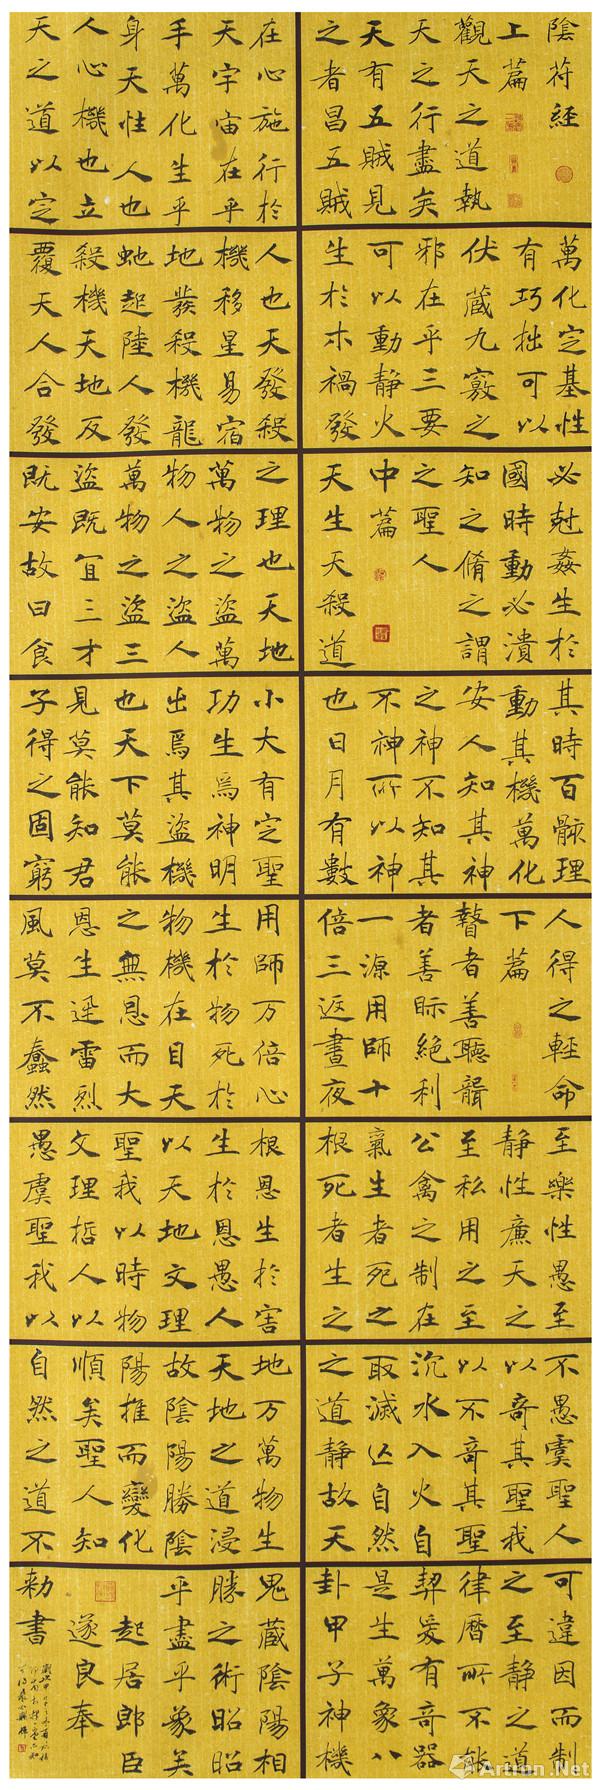 陰符經
上篇
觀天之道執
天之行盡矣
天有五賊見
之者昌五賊
在心施行於
天宇宙在乎
手萬化生乎
身天性人也
人心機也立
天之道以定
人也天發殺
機移星易宿
地發殺機龍
虵起陸人發
殺機天地反
覆天人合發
萬化定基性
有巧拙可以
伏藏九竅之
邪在乎三要
可以動靜火
生於木禍發
必尅姦生於
國時動必潰
知之脩之謂
之聖人
中篇
天生天殺道
之理也天地
萬物之盜萬
物人之盜人
萬物之盜三
盜既宜三才
既安故曰食
其時百骸理
動其機萬化
安人知其神
之神不知其
不神所以神
也日月有數
小大有定聖
功生焉神明
出焉其盜機
也天下莫能
見莫能知君
子得之固窮
人得之輕命
下篇
瞽者善聽聾
者善眎絕利
一源用師十
倍三返晝夜
用師万倍心
生於物死於
物機在目天
之無恩而大
恩生迅雷烈
風莫不蠢然
至樂性愚至
靜性廉天之
至私用之至
公禽之制在
氣生者死之
根死者生之
根恩生於害
生於恩愚人
以天地文理
聖我以時物
文理哲人以
愚虞聖我以
不愚虞聖人
以奇其聖我
以不奇其聖
沉水入火自
取滅亾自然
之道靜故天
地万萬物生
天地之道浸
故陰陽勝陰
陽推而變化
順矣聖人知
自然之道不
可違因而制
之至靜之道
律曆所不能
契爰有奇器
是生萬象八
卦甲子神機
鬼藏陰陽相
勝之術昭昭
乎盡乎象矣
起居郎臣
遂良奉
勑書
Artron.Net